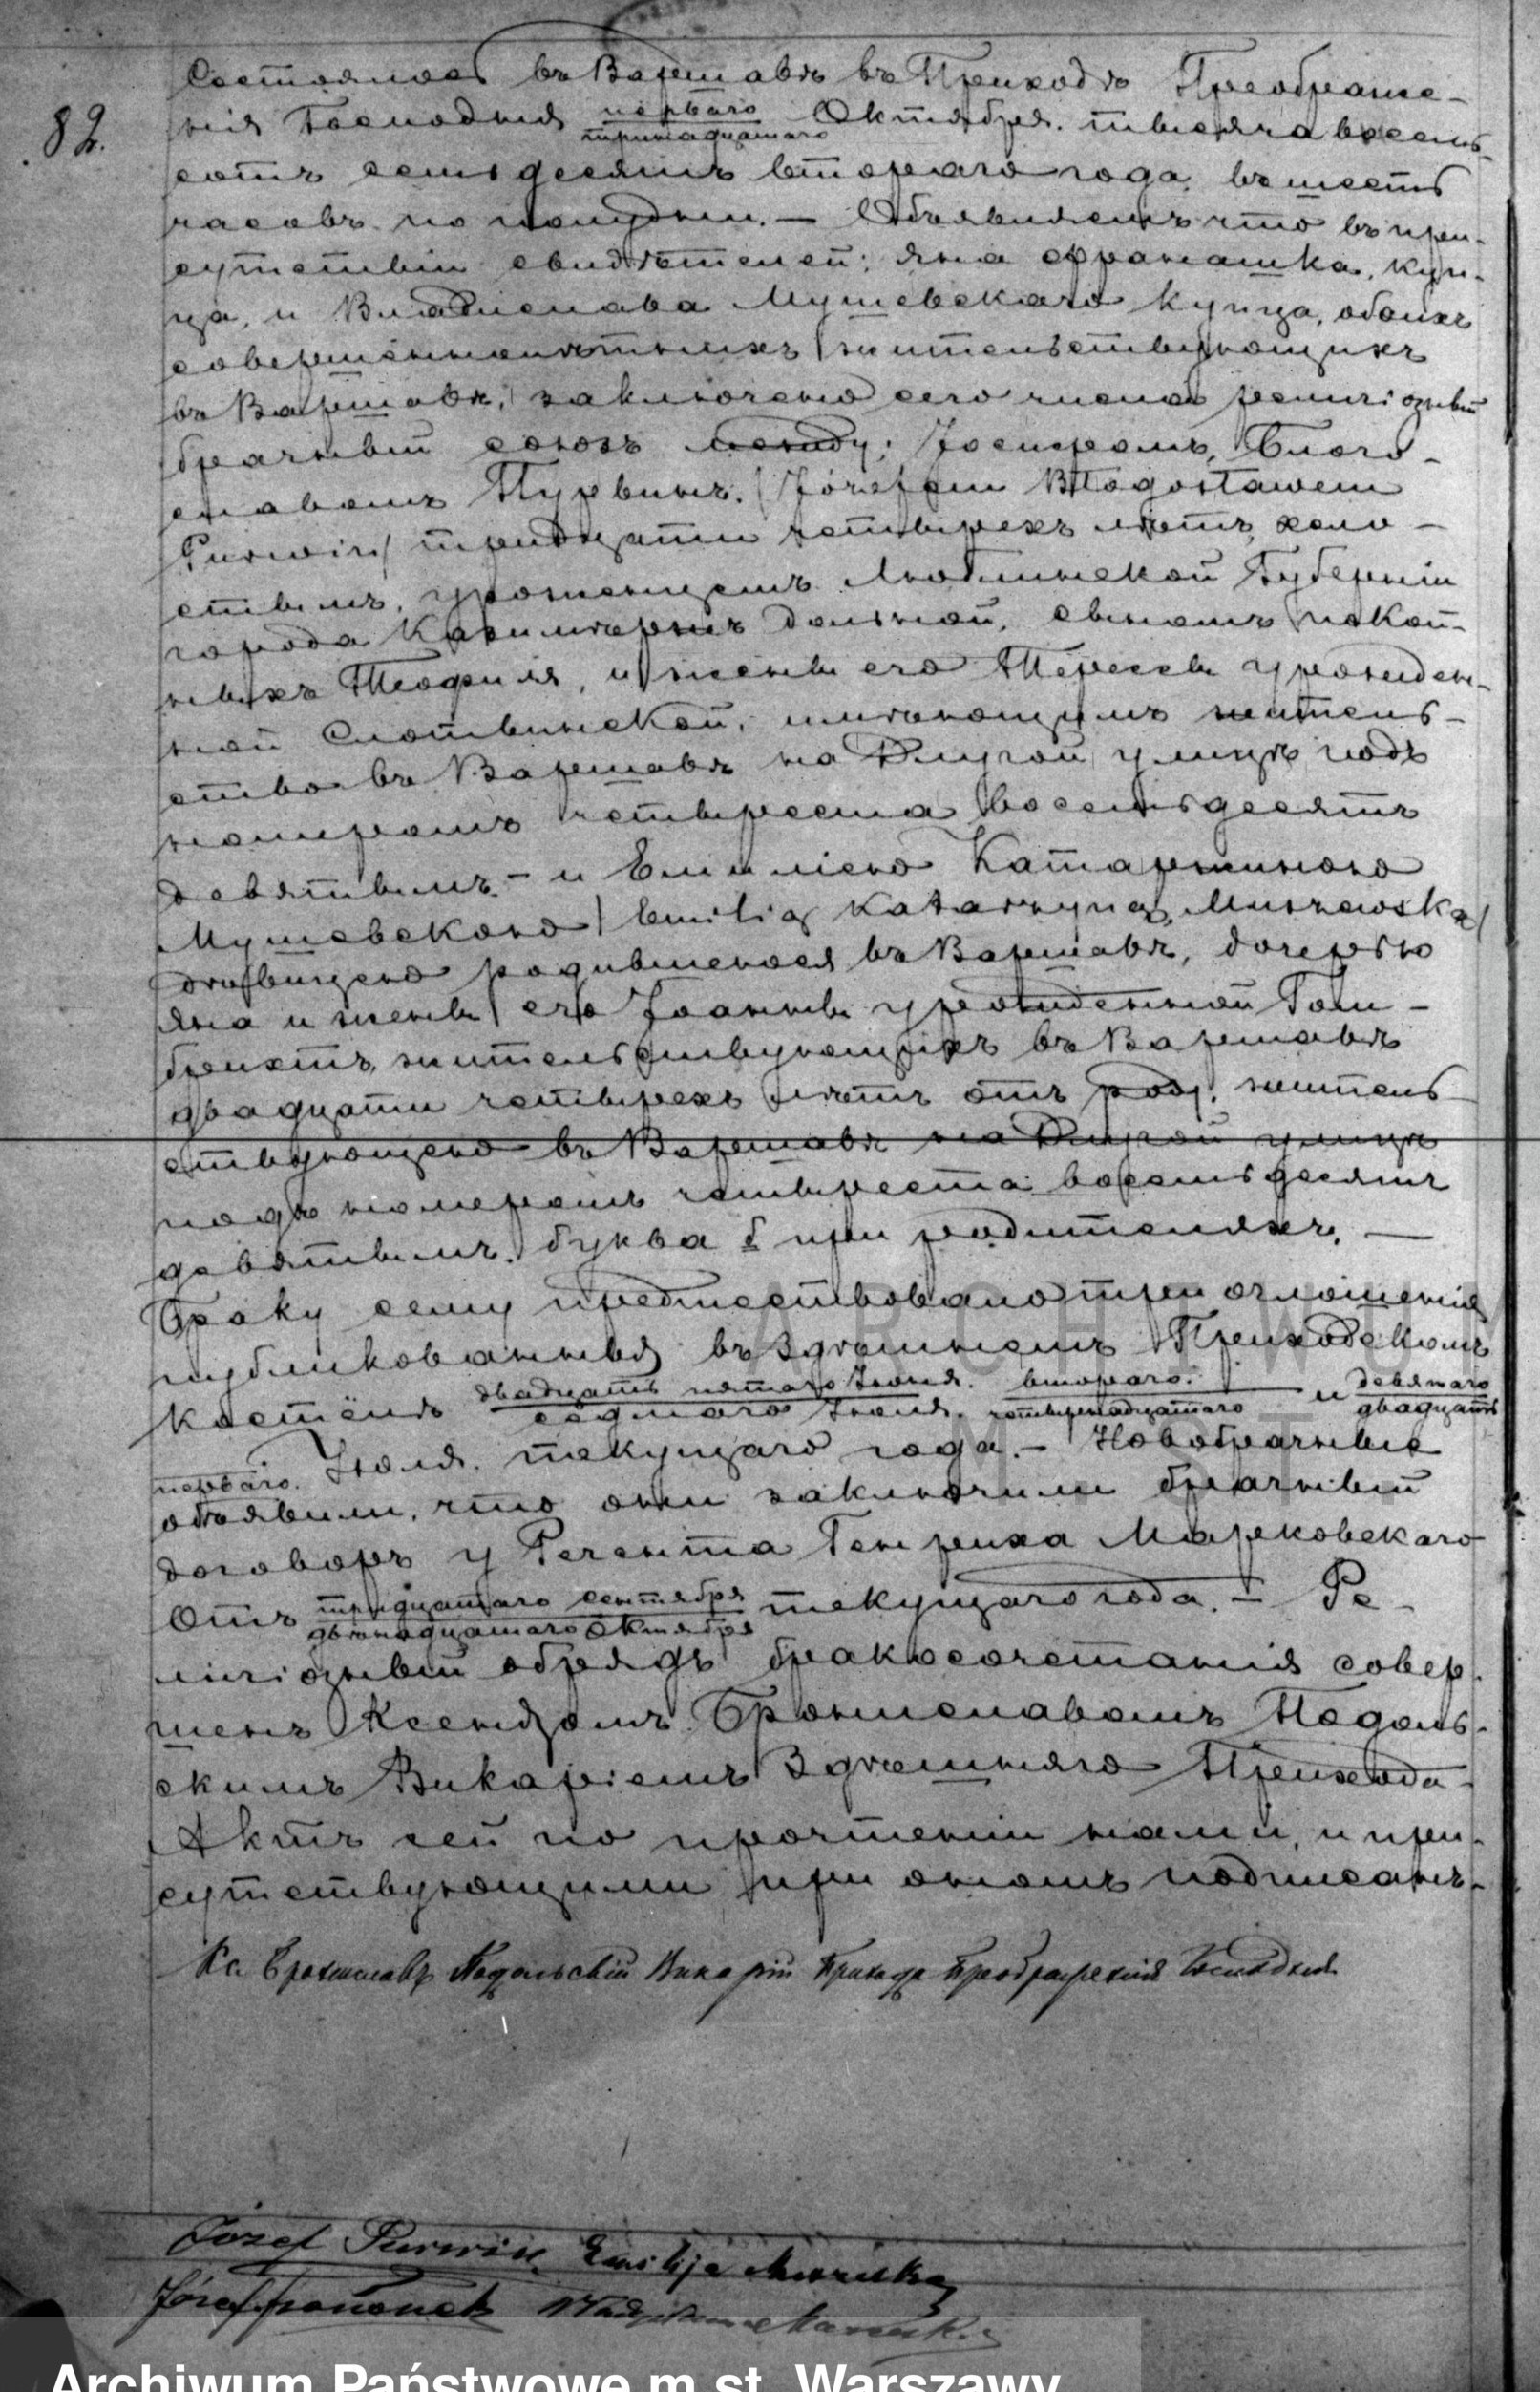 82.
Состоялось въ Варшавѣ въ Приходѣ Преображе-
нія Господня первого/тринадцатаго Октября тысяча восемь-
сотъ семьдесятъ втораго года, въ шесть
часовъ по полудни. — Объявляемъ что въ при-
сутствіи свидѣтелей: Яна Франашка, куп-
ца, и Владислава Мушевскаго купца, обоихъ
совершеннолѣтнихъ жительствующихъ
въ Варшавѣ, заключено сего числа религіозный
брачный союзъ между: Іосифомъ, Богу-
славомъ Пурвинъ. /Józefem Bogosławem
Purwin/ тридцати четырехъ лѣтъ, холо-
стымъ, уроженцемъ Люблинской Губерніи
города Казимержъ дольной, сыномъ покой-
ныхъ Теофиля, и жены его Тересы урожден-
ной Слотвинской, имѣющимъ житель-
ство въ Варшавѣ на Длугой улицѣ подъ
номеромъ четыреста восемьдесятъ
девятымъ — и Емиліею Катаржиною
Мушевскою /Emilią Katarzyną Muszewską/
дѣвицею родившеюся въ Варшавѣ, дочерью
Яна и жены его Іоанны урожденной Гом-
брихтъ, жительствующихъ въ Варшавѣ
двадцати четырехъ лѣтъ отъ роду, житель-
ствующею въ Варшавѣ на Длугой улицѣ
подъ номеромъ четыреста восемьдесятъ
девятымъ буква б при родителяхъ. —
Браку сему предшествовало три оглошенія
публикованныя въ Здѣшнемъ Приходскомъ
Костёлѣ двадцать пятаго Іюня/седмаго Іюля, втораго/четырнадцатаго и девятаго/двадцать
перваго Іюля текущаго года. — Новобрачные
объявили, что они заключили брачный
договоръ у Регента Генриха Марковскаго
отъ тридцатаго сентября/двѣнадцатаго Октября текущаго года. — Ре-
лигіозный обрядъ бракосочетанія совер-
шенъ Ксендзомъ Брониславомъ Подоль-
скимъ Викаріемъ Здѣшняго Прихода
Актъ сей по прочтеніи нами, и при-
сутствующими при ономъ подписанъ.
Кс. Брониславъ Подольскій Викарій Прихода Преображенія Господня
Józef Purwin Emilja Muszewska
Józef Franaszek Władysław Muszewski
ARCHIWUM
M. ST.
Archiwum Państwowe m.st. Warszawy